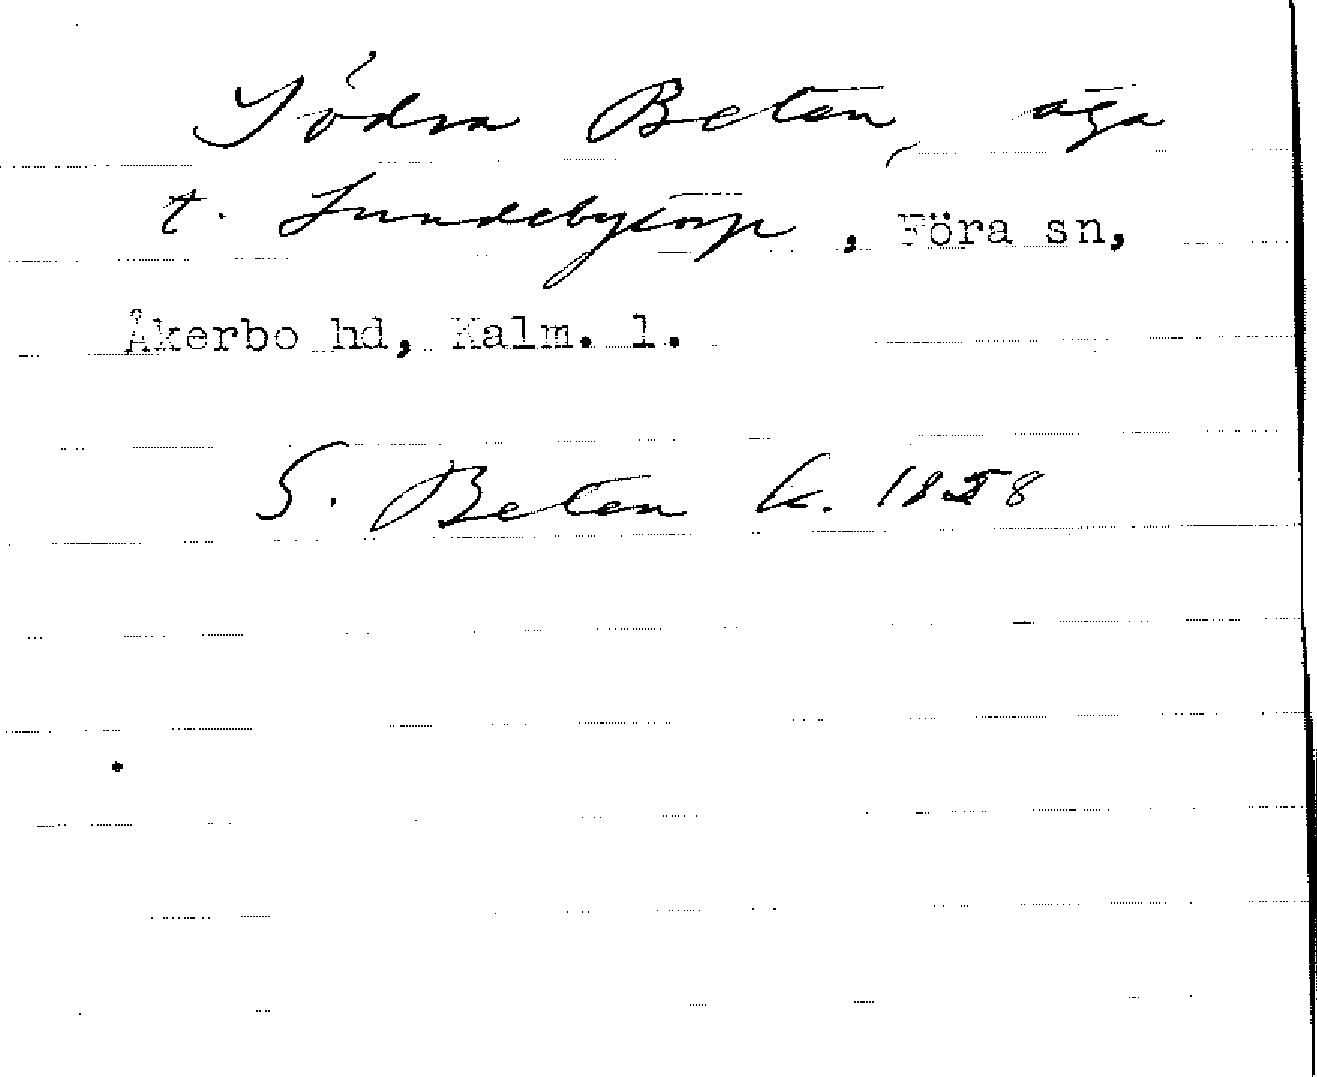 Södra Beten, äga
t. Lundebytorp, Föra sn,
Åkerbo hd, Kalm. l.
S. Beten k. 1858